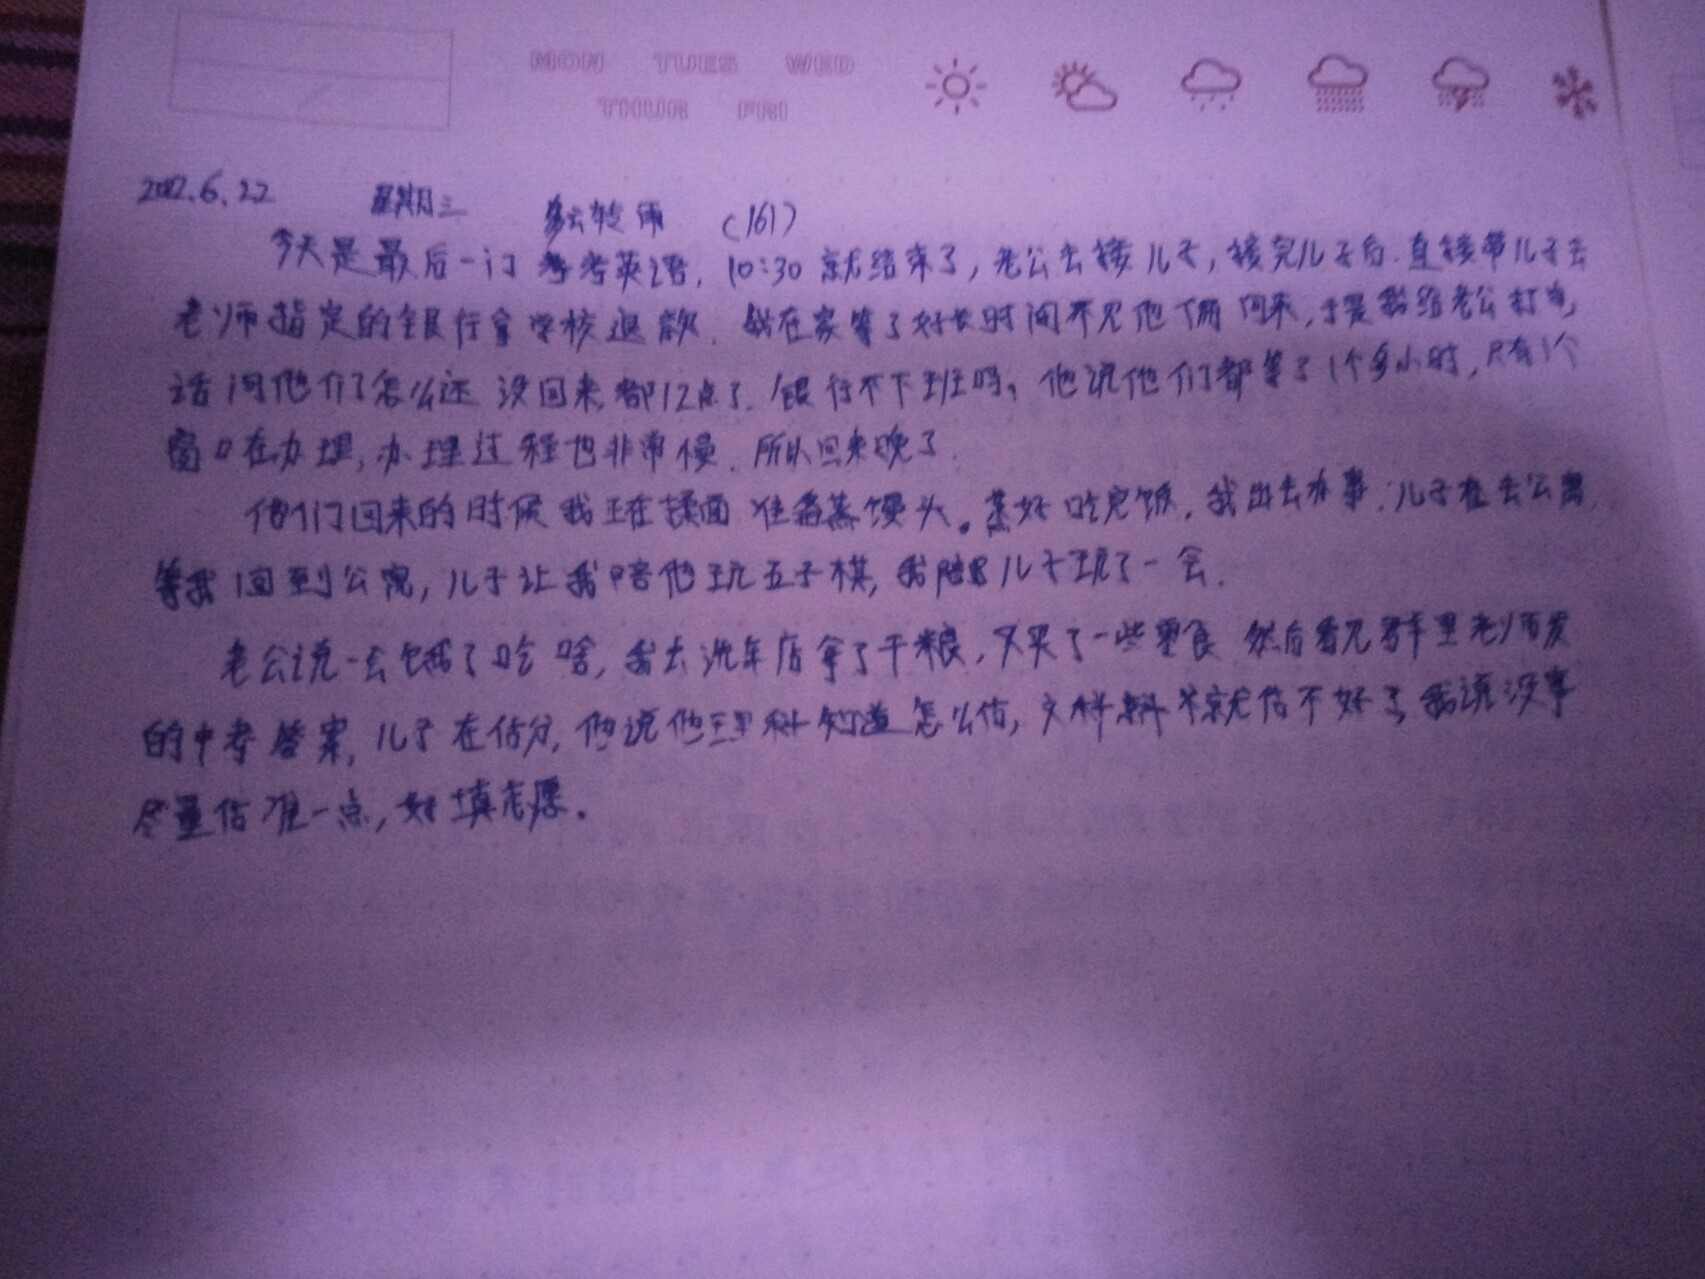 MON TUES WED
THUR FRI
2022.6.22 星期三 多云转雨 (161)
今天是最后一门考考英语, 10:30就结束了, 老公去接儿子, 接完儿子后. 直接带儿子去
老师指定的银行拿学校退款. 我在家等了好长时间不见他俩回来, 于是我给老公打电
话问他们怎么还没回来, 都12点了. 银行不下班吗, 他说他们都等了1个多小时, 只有1个
窗口在办理, 办理过程也非常慢. 所以回来晚了.
他们回来的时候我正在揉面准备蒸馒头。蒸好吃完饭. 我出去办事. 儿子在去公寓.
等我回到公寓, 儿子让我陪他玩五子棋, 我陪儿子玩了一会.
老公说一会饿了吃啥, 我去洗车店拿了干粮, 又买了一些零食 然后看见群里老师发
的中考答案, 儿子在估分, 他说他理科知道怎么估, 文科就估不好了, 我说没事
尽量估准一点, 好填志愿。